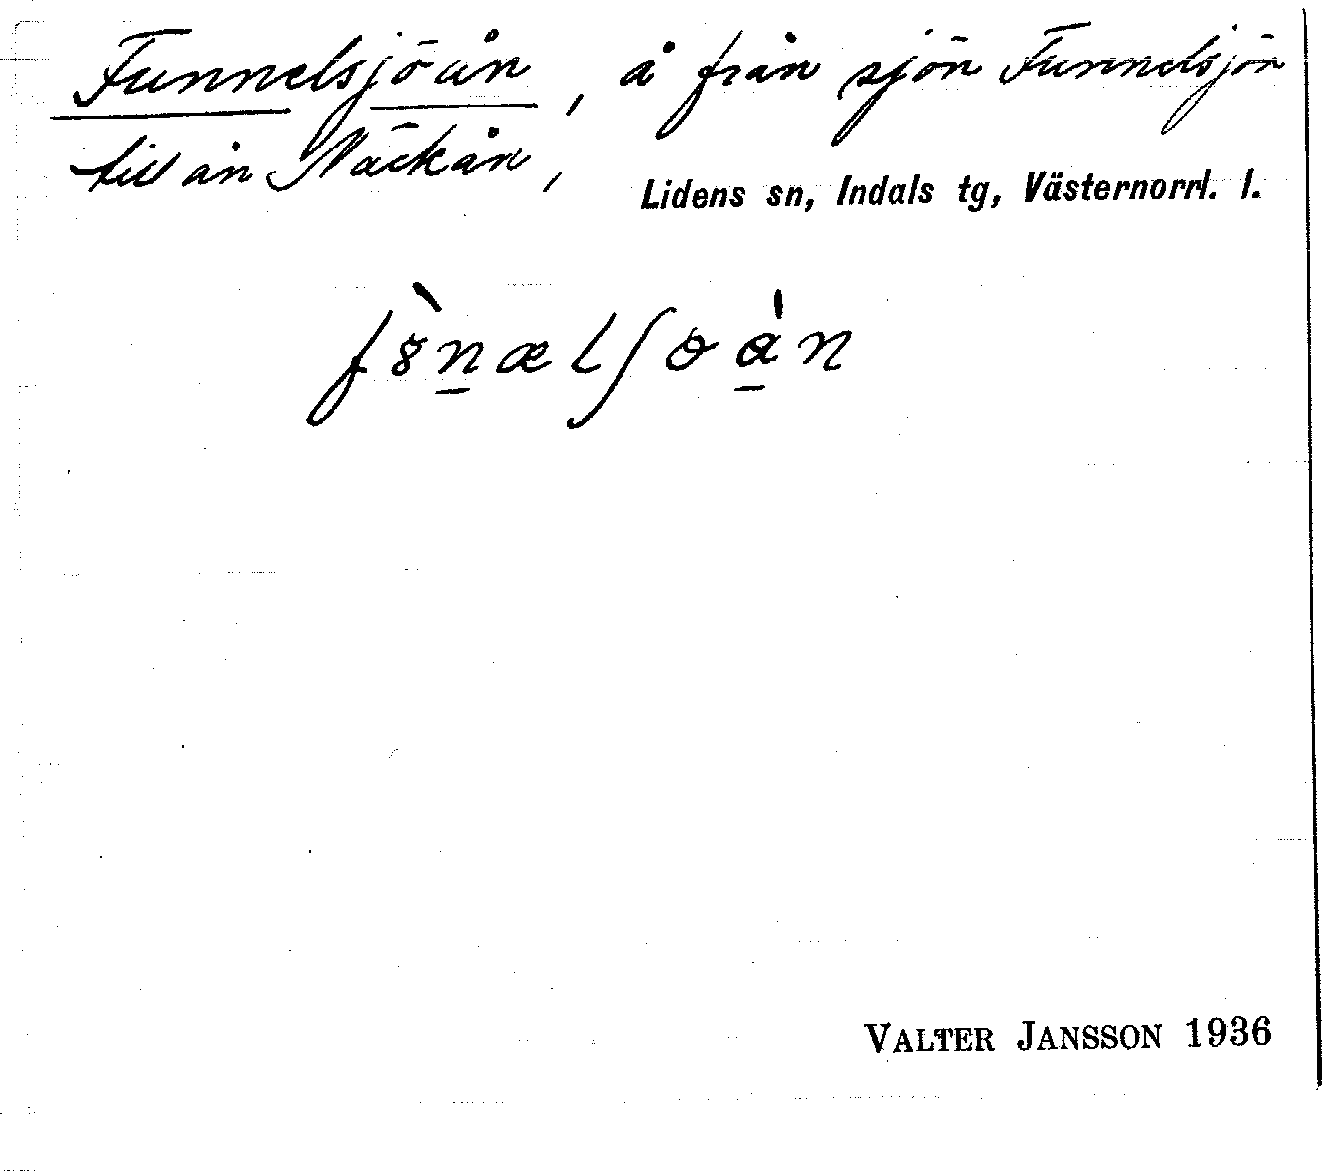 Funnelsjöån, å från sjön Funnelsjön
till ån Näckån,
Lidens sn, Indals tg, Västernorrl. l.
fȣ̀n̲ælʃɵa̲̍n
VALTER JANSSON 1936